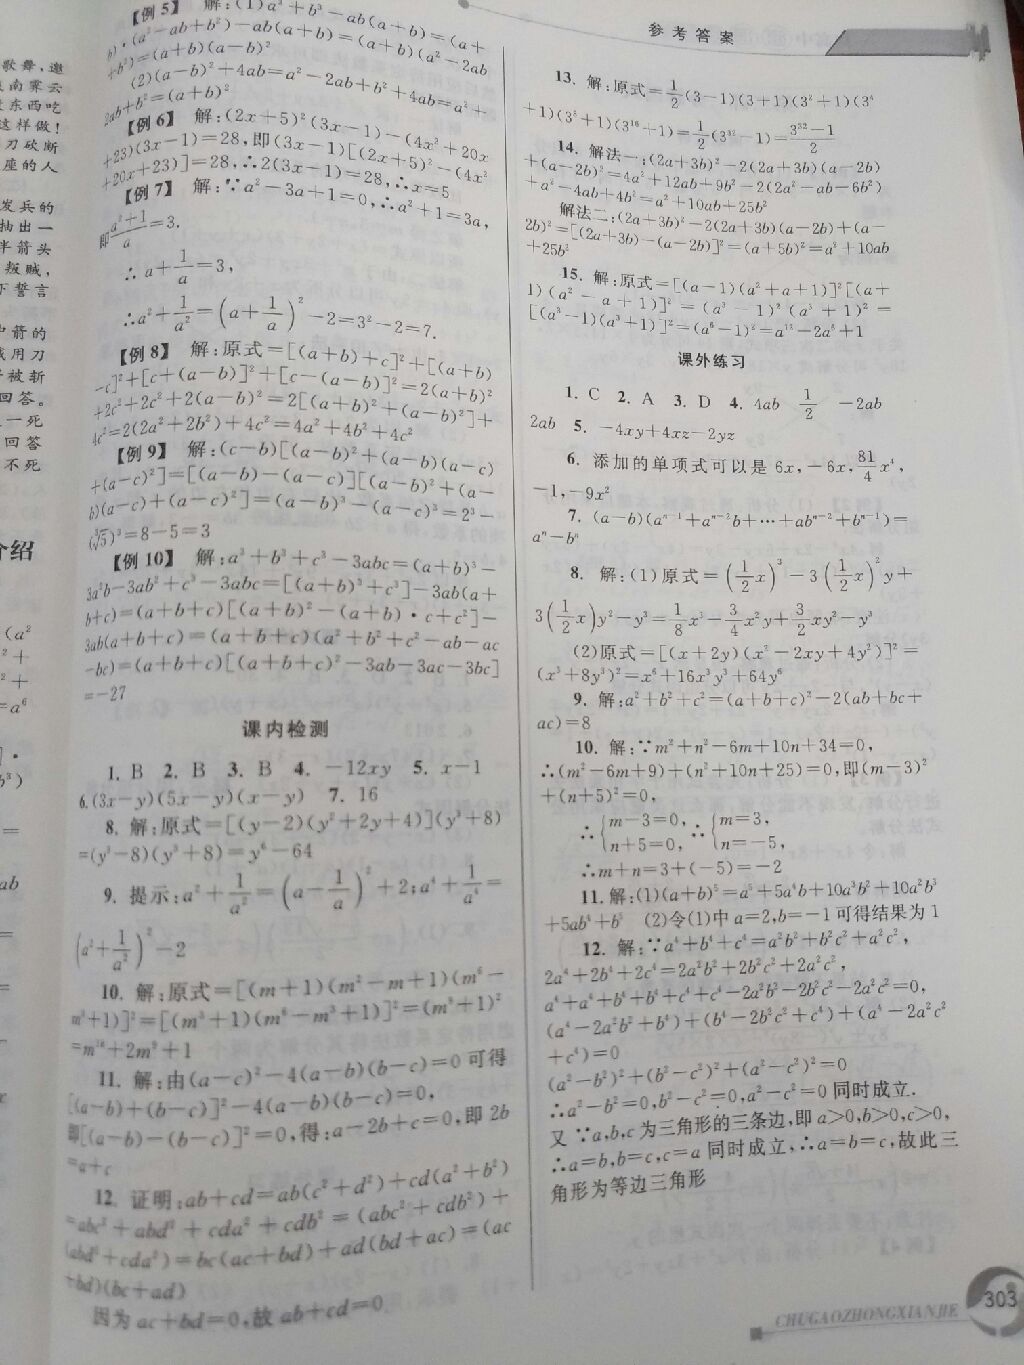 参考答案
歌舞,邀
南霁云
东西吃
这样做!
刀砍断
座的人
发兵的
抽出一
半箭头
叛贼,
誓言
箭的
用刀
被斩
回答。
一死
回答
不死
介绍
【例5】 解:(1)a³+b³-ab(a+b)=(a+
b)·(a²-ab+b²)-ab(a+b)=(a+b)(a²-2ab
+b²)=(a+b)(a-b)²
(2)(a-b)²+4ab=a²-2ab+b²+4ab=a²+
2ab+b²=(a+b)²
【例6】 解:(2x+5)²(3x-1)-(4x²+20x
+23)(3x-1)=28,即(3x-1)[(2x+5)²-(4x²
+20x+23)]=28,∴2(3x-1)=28,∴x=5
【例7】 解:∵a²-3a+1=0,∴a²+1=3a,
即(a²+1)/a=3.
∴a+1/a=3,
∴a²+1/a²=(a+1/a)²-2=3²-2=7.
【例8】 解:原式=[(a+b)+c]²+[(a+b)
-c]²+[c+(a-b)]²+[c-(a-b)]²=2(a+b)²
+2c²+2c²+2(a-b)²=2[(a+b)²+(a-b)²]+
4c²=2(2a²+2b²)+4c²=4a²+4b²+4c²
【例9】 解:(c-b)[(a-b)²+(a-b)(a-c)
+(a-c)²]=[(a-b)-(a-c)][(a-b)²+(a-
b)(a-c)+(a-c)²]=(a-b)³-(a-c)³=2³-
(∛5)³=8-5=3
【例10】 解:a³+b³+c³-3abc=(a+b)³-
3a²b-3ab²+c³-3abc=[(a+b)³+c³]-3ab(a+
b+c)=(a+b+c)[(a+b)²-(a+b)·c+c²]-
3ab(a+b+c)=(a+b+c)(a²+b²+c²-ab-ac
-bc)=(a+b+c)[(a+b+c)²-3ab-3ac-3bc]
=-27
课内检测
1. B 2. B 3. B 4. -12xy 5. x-1
6.(3x-y)(5x-y)(x-y) 7. 16
8. 解:原式=[(y-2)(y²+2y+4)](y³+8)
=(y³-8)(y³+8)=y⁶-64
9. 提示:a²+1/a²=(a-1/a)²+2;a⁴+1/a⁴=
(a²+1/a²)²-2
10. 解:原式=[(m+1)(m²-m+1)(m⁶-
m³+1)]²=[(m³+1)(m⁶-m³+1)]²=(m⁹+1)²
=m¹⁸+2m⁹+1
11. 解:由(a-c)²-4(a-b)(b-c)=0可得
[(a-b)+(b-c)]²-4(a-b)(b-c)=0,
即[(a-b)-(b-c)]²=0,得:a-2b+c=0,即2b
=a+c
12. 证明:ab+cd=ab(c²+d²)+cd(a²+b²)
=abc²+abd²+cda²+cdb²=(abc²+cdb²)+
(abd²+cda²)=bc(ac+bd)+ad(bd+ac)=(ac
+bd)(bc+ad)
因为ac+bd=0,故ab+cd=0
13. 解:原式=1/2(3-1)(3+1)(3²+1)(3⁴
+1)(3⁸+1)(3¹⁶+1)=1/2(3³²-1)=(3³²-1)/2
14. 解法一:(2a+3b)²-2(2a+3b)(a-2b)
+(a-2b)²=4a²+12ab+9b²-2(2a²-ab-6b²)
+a²-4ab+4b²=a²+10ab+25b²
解法二:(2a+3b)²-2(2a+3b)(a-2b)+(a-
2b)²=[(2a+3b)-(a-2b)]²=(a+5b)²=a²+10ab
+25b²
15. 解:原式=[(a-1)(a²+a+1)]²[(a+
1)(a²-a+1)]²=(a³-1)²(a³+1)²=
[(a³-1)(a³+1)]²=(a⁶-1)²=a¹²-2a⁶+1
课外练习
1. C 2. A 3. D 4. 4ab 1/2 -2ab
2ab 5. -4xy+4xz-2yz
6. 添加的单项式可以是6x,-6x,81/4x⁴,
-1,-9x²
7. (a-b)(aⁿ⁻¹+aⁿ⁻²b+…+abⁿ⁻²+bⁿ⁻¹)=
aⁿ-bⁿ
8. 解:(1)原式=(1/2x)³-3(1/2x)²y+
3(1/2x)y²-y³=1/8x³-3/4x²y+3/2xy²-y³
(2)原式=[(x+2y)(x²-2xy+4y²)]²=
(x³+8y³)²=x⁶+16x³y³+64y⁶
9. 解:a²+b²+c²=(a+b+c)²-2(ab+bc+
ac)=8
10. 解:∵m²+n²-6m+10n+34=0,
∴(m²-6m+9)+(n²+10n+25)=0,即(m-3)²
+(n+5)²=0,
∴{m-3=0, ∴{m=3,
n+5=0, n=-5,
∴m+n=3+(-5)=-2
11. 解:(1)(a+b)⁵=a⁵+5a⁴b+10a³b²+10a²b³
+5ab⁴+b⁵ (2)令(1)中a=2,b=-1可得结果为1
12. 解:∵a⁴+b⁴+c⁴=a²b²+b²c²+a²c²,
2a⁴+2b⁴+2c⁴=2a²b²+2b²c²+2a²c²,
a⁴+a⁴+b⁴+b⁴+c⁴+c⁴-2a²b²-2b²c²-2a²c²=0,
(a⁴-2a²b²+b⁴)+(b⁴-2b²c²+c⁴)+(a⁴-2a²c²
+c⁴)=0
(a²-b²)²+(b²-c²)²+(a²-c²)²=0
∴a²-b²=0,b²-c²=0,a²-c²=0同时成立.
又∵a,b,c为三角形的三条边,即a>0,b>0,c>0,
∴a=b,b=c,c=a同时成立,∴a=b=c,故此三
角形为等边三角形
CHUGAOZHONGXIANJIE
303